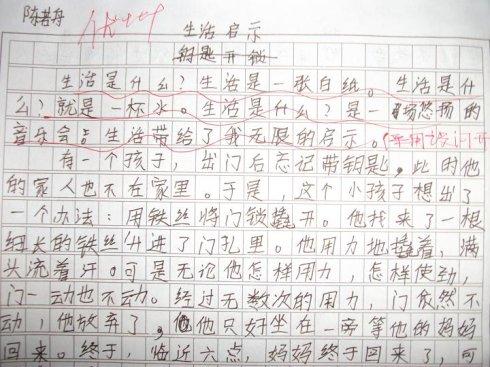 陈若舟
生活启示
钥匙开锁
生活是什么？生活是一张白纸。生活是什
么？就是一杯水。生活是什么？是一场悠扬的
音乐会。生活带给了我无限的启示。
有一个孩子，出门后忘记带钥匙。此时他
的家人也不在家里。于是这个小孩子想出了
一个办法：用铁丝将门锁撬开。他找来了一根
细长的铁丝伸进了门孔里。他用力地撬着，满
头流着汗。可是无论他怎样用力，怎样使劲，
门一动也不动。经过无数次的用力，门依然不
动，他放弃了，他只好坐在一旁等他的妈妈
回来。终于，临近六点，妈妈终于回来了，可